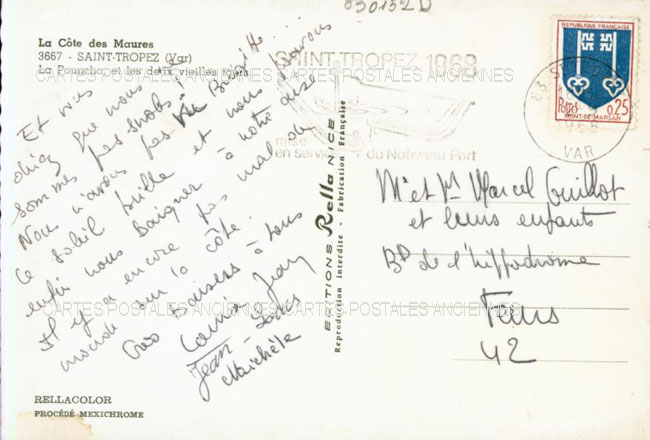 030132D
La Côte des Maures
3667 - SAINT-TROPEZ (Var)
La Pouncho, et les deux vieilles tours
Et vous
que nous
sommes pas snobs !
Nous n'avons pas vu Brigitte...
le soleil brille et nous pouvons
enfin nous baigner à notre aise
Il y a encore pas mal de
monde sur la côte.
Gros Baisers à tous
Jean
Jean-
Michèle
EDITIONS Rella NICE
Reproduction interdite - Fabrication Française
SAINT-TROPEZ 1968
mise
en service du Nouveau Port
REPUBLIQUE FRANÇAISE
Postes 0,25
MONT-DE-MARSAN
83 S
1968
VAR
Mr et Me Marcel Guillot
et leurs enfants
Bd de l'hippodrome
Feurs
42
CARTES POSTALES ANCIENNES
CARTES POSTALES ANCIENNES
RELLACOLOR
PROCÉDÉ MEXICHROME